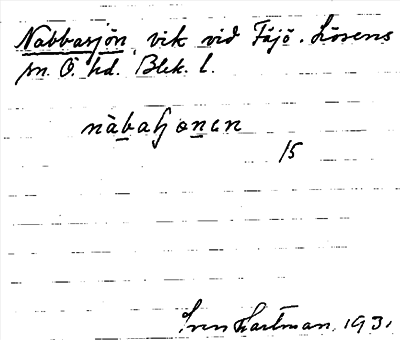 Nabbasjön, vik vid Fäjö. Lösens
sn. Ö. hd. Blek. l.
15
Sven Hartman, 1931